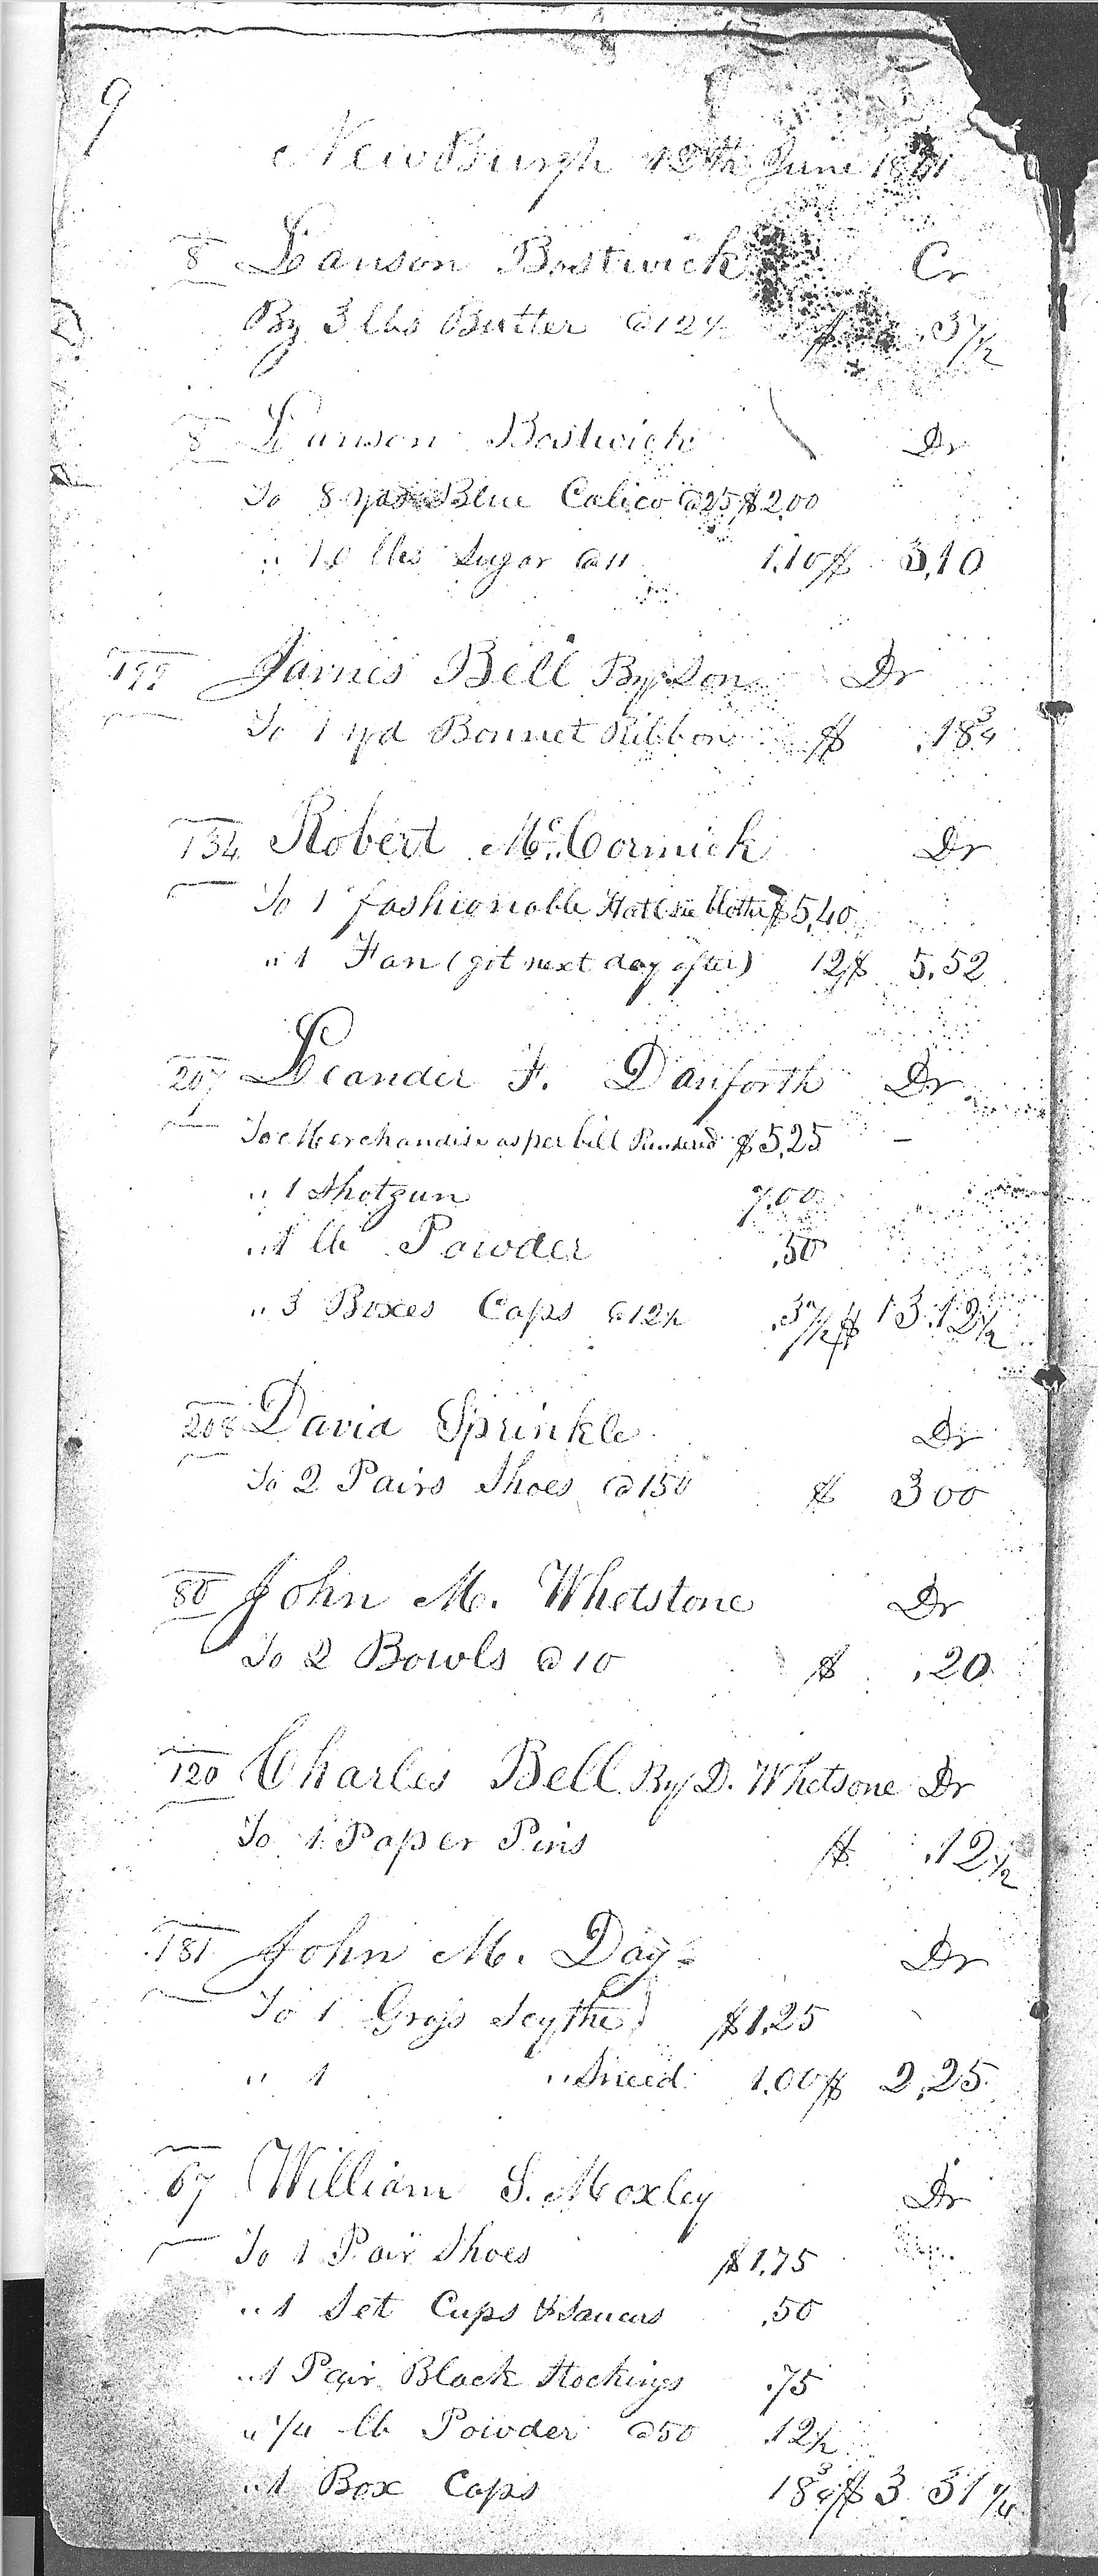 9
NewBurgh 12th June 1861
8 Lanson Bostwick Cr
By 3 lbs Butter @ 12½ $ .37½
8 Lanson Bostwick Dr
To 8 yds Blue Calico @25 $2.00
" 10 lbs Sugar @11 1.10 $ 3.10
199 James Bell By Son Dr
To 1 yd Bonnet Ribbon $ .18¾
134 Robert McCormick Dr
To 1 fashionable Hatt $5.40
" 1 Fan (got next day after) 12 $ 5.52
207 Leander F. Danforth Dr
To Merchandise as per bill Rendered $5.25 –
" 1 Shotgun 7.00
" 1 lb Powder .50
" 3 Boxes Caps @12½ .37½ $ 13.12½
208 David Sprinkle Dr
To 2 Pairs Shoes @150 $ 300
80 John M. Whetstone Dr
To 2 Bowls @10 $ .20
120 Charles Bell By D. Whetsone Dr
To 1 Paper Pins $ .12½
181 John M. Day Dr
To 1 Grass Scythe $1.25
" 1 " Sneed 1.00 $ 2.25
67 William S. Moxley Dr
To 1 Pair Shoes $1.75
" 1 Set Cups & Saucers .50
" 1 Pair Black Stockings .75
" ¼ lb Powder @50 .12½
" 1 Box Caps 18¾ $ 3 31¼